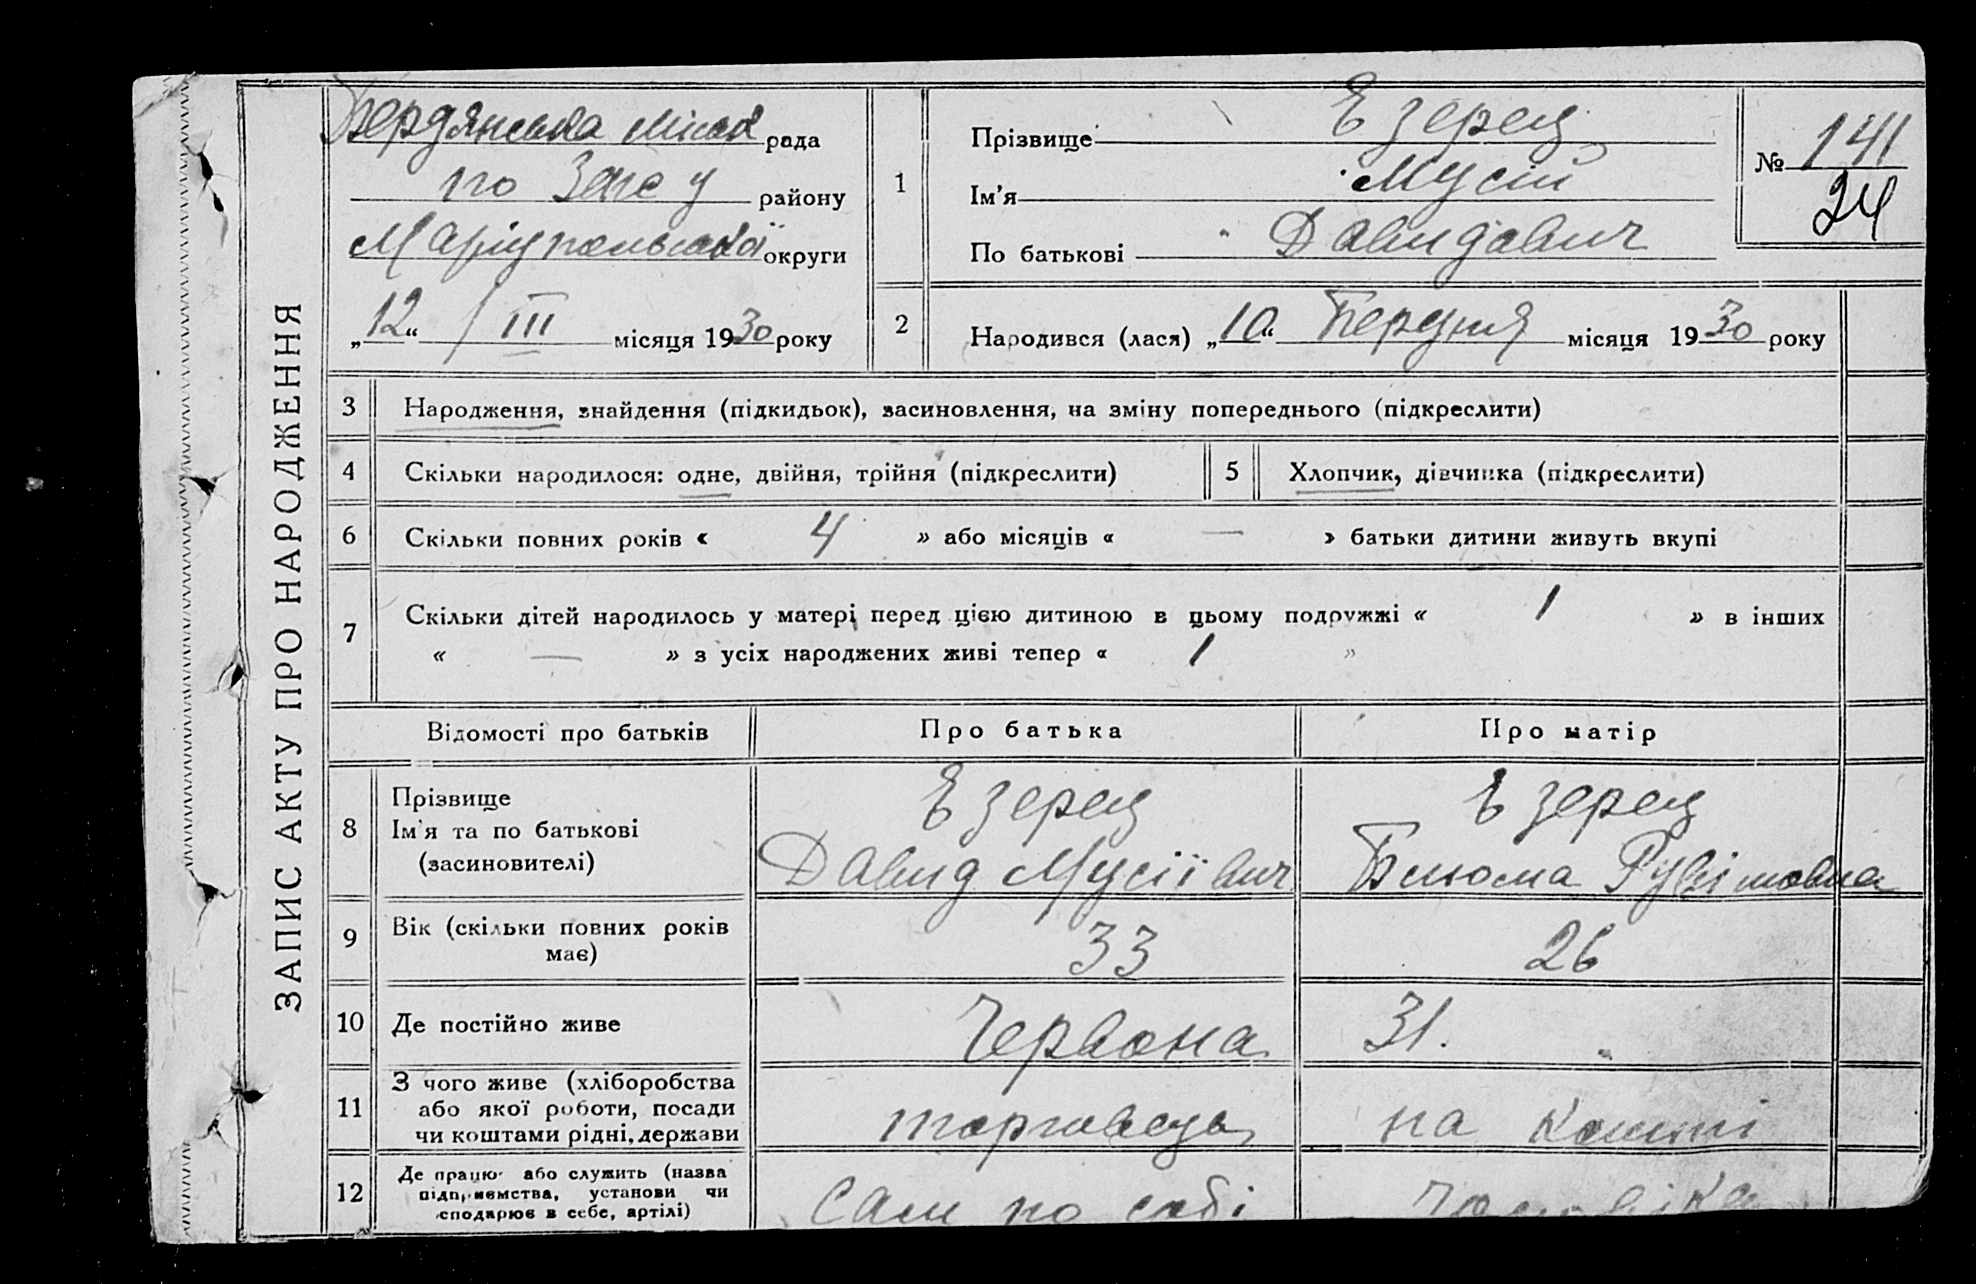 ЗАПИС АКТУ ПРО НАРОДЖЕННЯ
Бердянська міськ рада
по Загс у району
Маріупольської округи
„12“ / III місяця 1930 року
1
Прізвище Езерец
Ім'я Мусій
По батькові Давидович
№ 141
24
2
Народився (лася) „10“ Березня місяця 1930 року
3 Народження, знайдення (підкидьок), засиновлення, на зміну попереднього (підкреслити)
4 Скільки народилося: одне, двійня, трійня (підкреслити)
5 Хлопчик, дівчинка (підкреслити)
6 Скільки повних років « 4 » або місяців « — » батьки дитини живуть вкупі
7 Скільки дітей народилось у матері перед цією дитиною в цьому подружжі « 1 » в інших
« — » з усіх народжених живі тепер « 1 »
Відомості про батьків Про батька Про матір
8 Прізвище
Ім'я та по батькові
(засиновителі)
Езерец
Давид Мусіївич
Езерец
Блюма Рувімовна
9 Вік (скільки повних років
має)
33 26
10 Де постійно живе Червона 31.
11 З чого живе (хліборобства
або якої роботи, посади
чи коштами рідні, держави
торговець на кошті
12 Де працює або служить (назва
підприємства, установи чи
сподарює в себе, артілі)
Сам по собі чоловіка